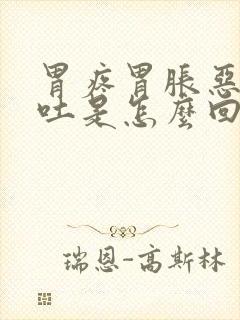 胃疼胃脹惡
吐是怎麼回
瑞恩-高斯林